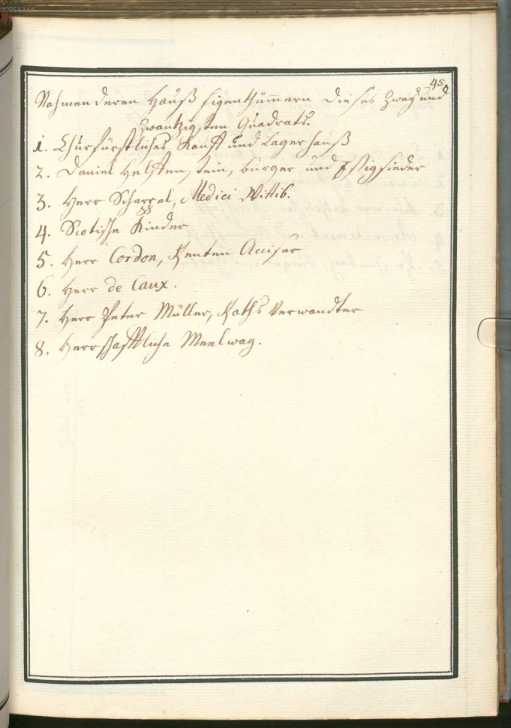 45
Nahmen deren Hauß Eigenthümern dieses Zwey und
Zwantzigsten Quadrats.
1. Churfürstliches Kauff und Lagerhauß
2. Daniel bürger und Eßigsieder
3. Herr Medici Wittib.
4. Kinder
5. Herr Cordon, Renten
6. Herr de Caux.
7. Herr Peter Müller, Raths Verwandter
8. Herrschafftliche Meelwag.